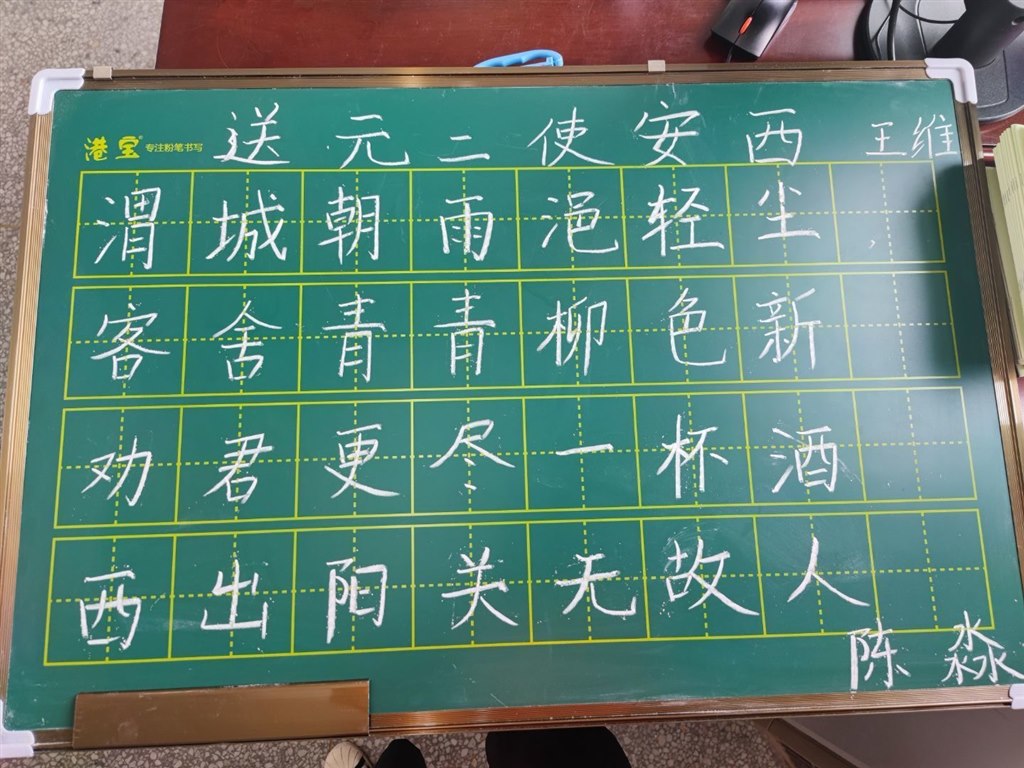 港宝® 专注粉笔书写
送元二使安西 王维
渭城朝雨浥轻尘,
客舍青青柳色新
劝君更尽一杯酒
西出阳关无故人
陈淼